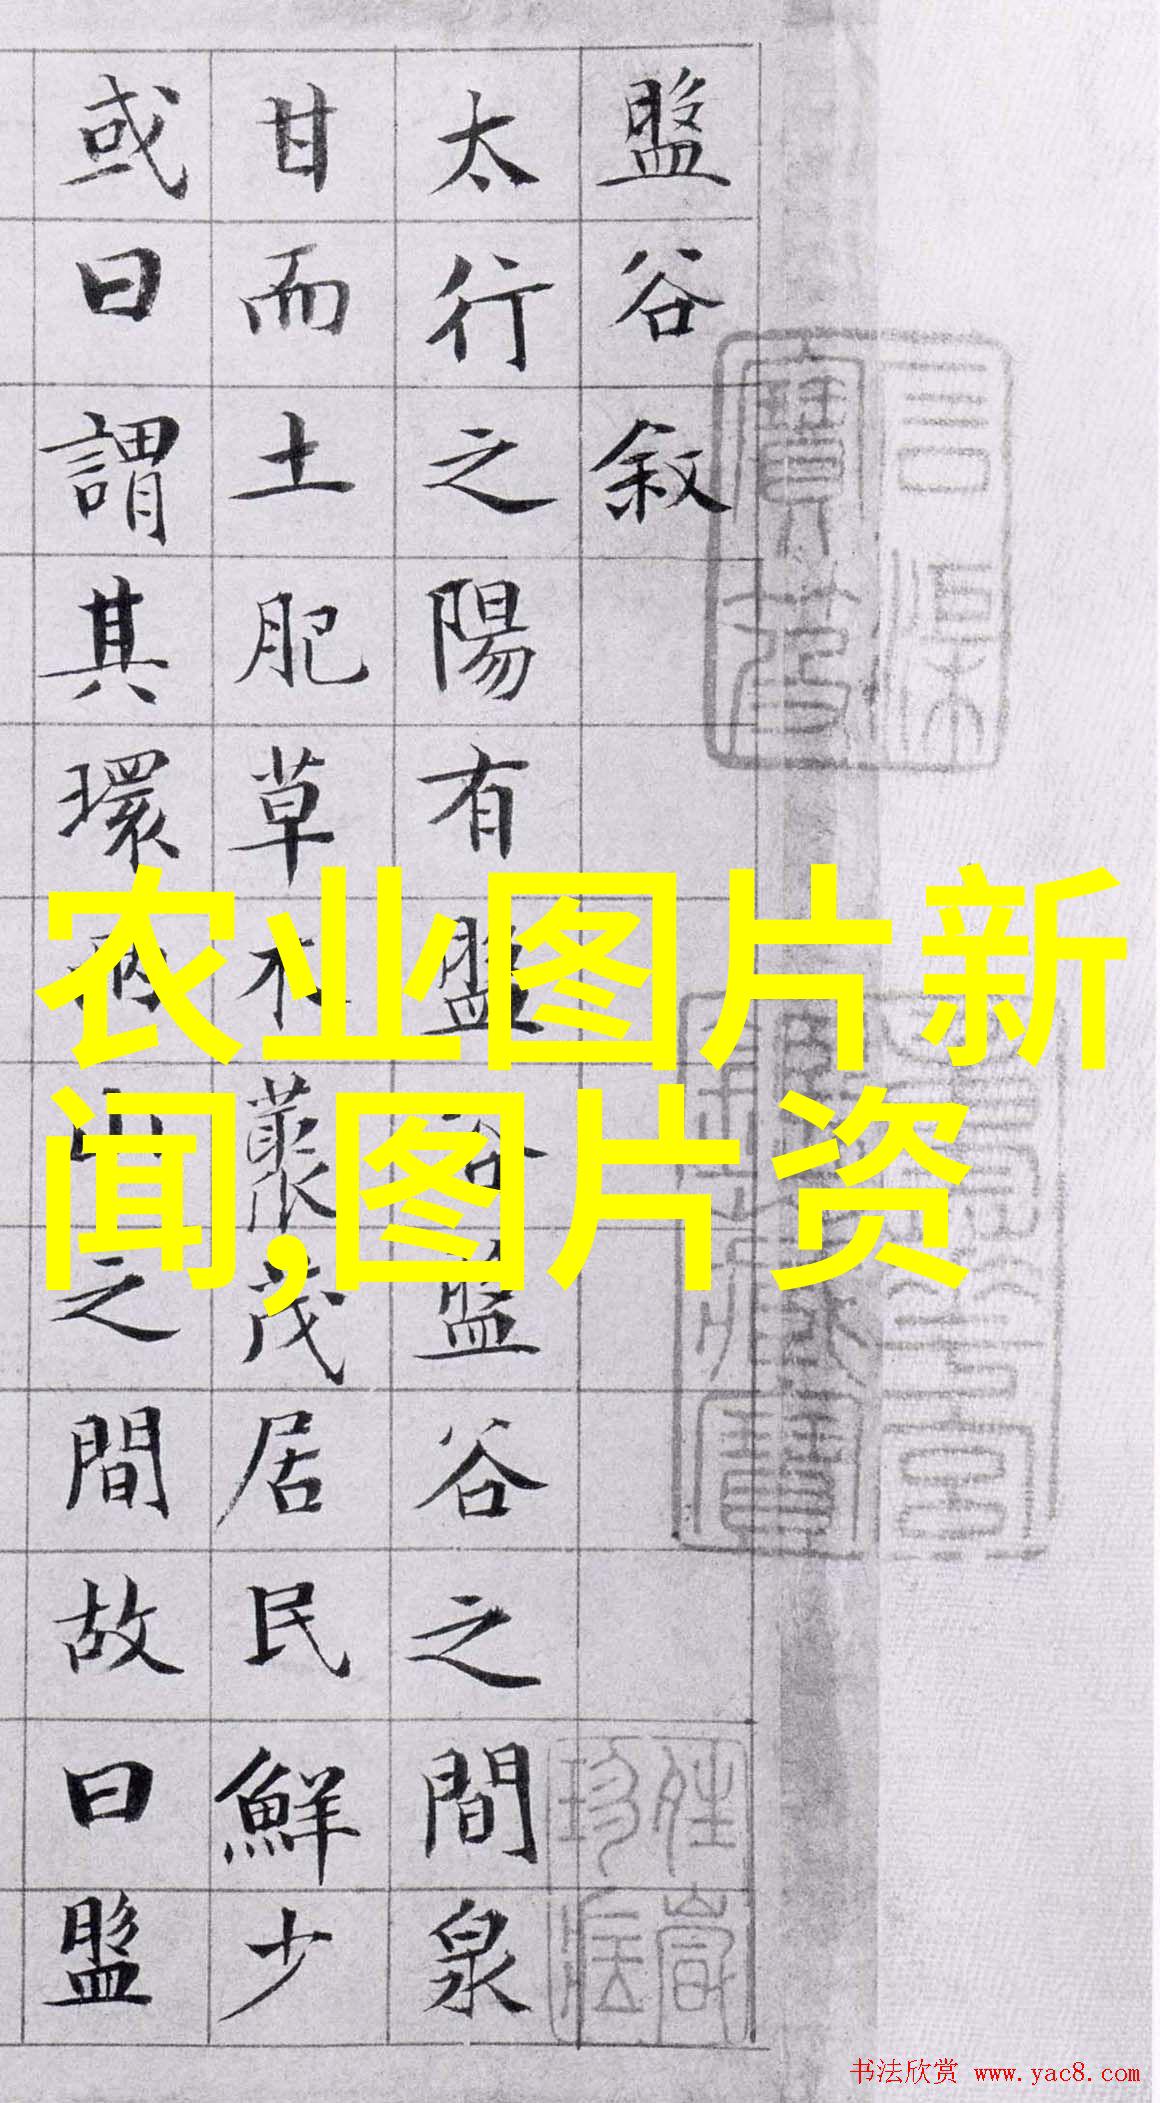 盤谷敘
太行之陽有盤谷盤谷之間泉
甘而土肥草木叢茂居民鮮少
或曰謂其環兩山之間故曰盤
农业图片新
闻,图片资
书法欣赏 www.yac8.com